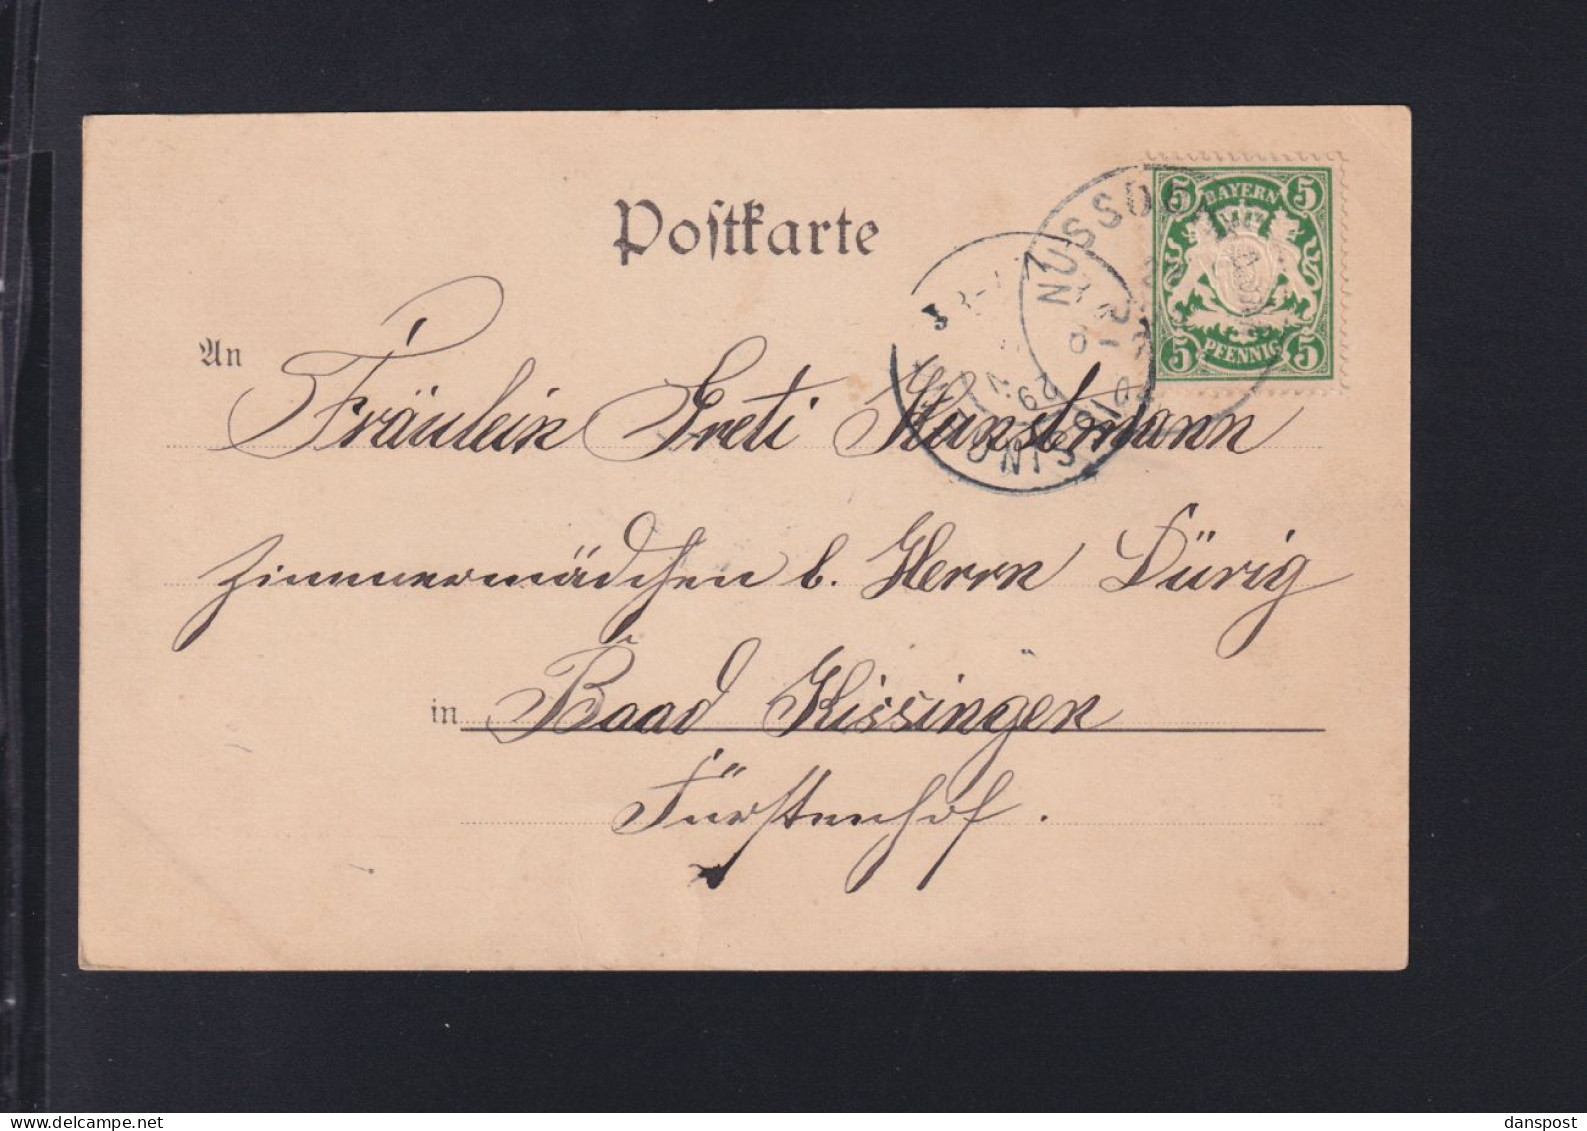 Postkarte
5 BAYERN 5
5 PFENNIG 5
NUSSDORF
An Fräulein Greti Kunstmann
Zimmermädchen b. Herrn Dürig
in Baad Kissingen
Fürstenhof.
danspost